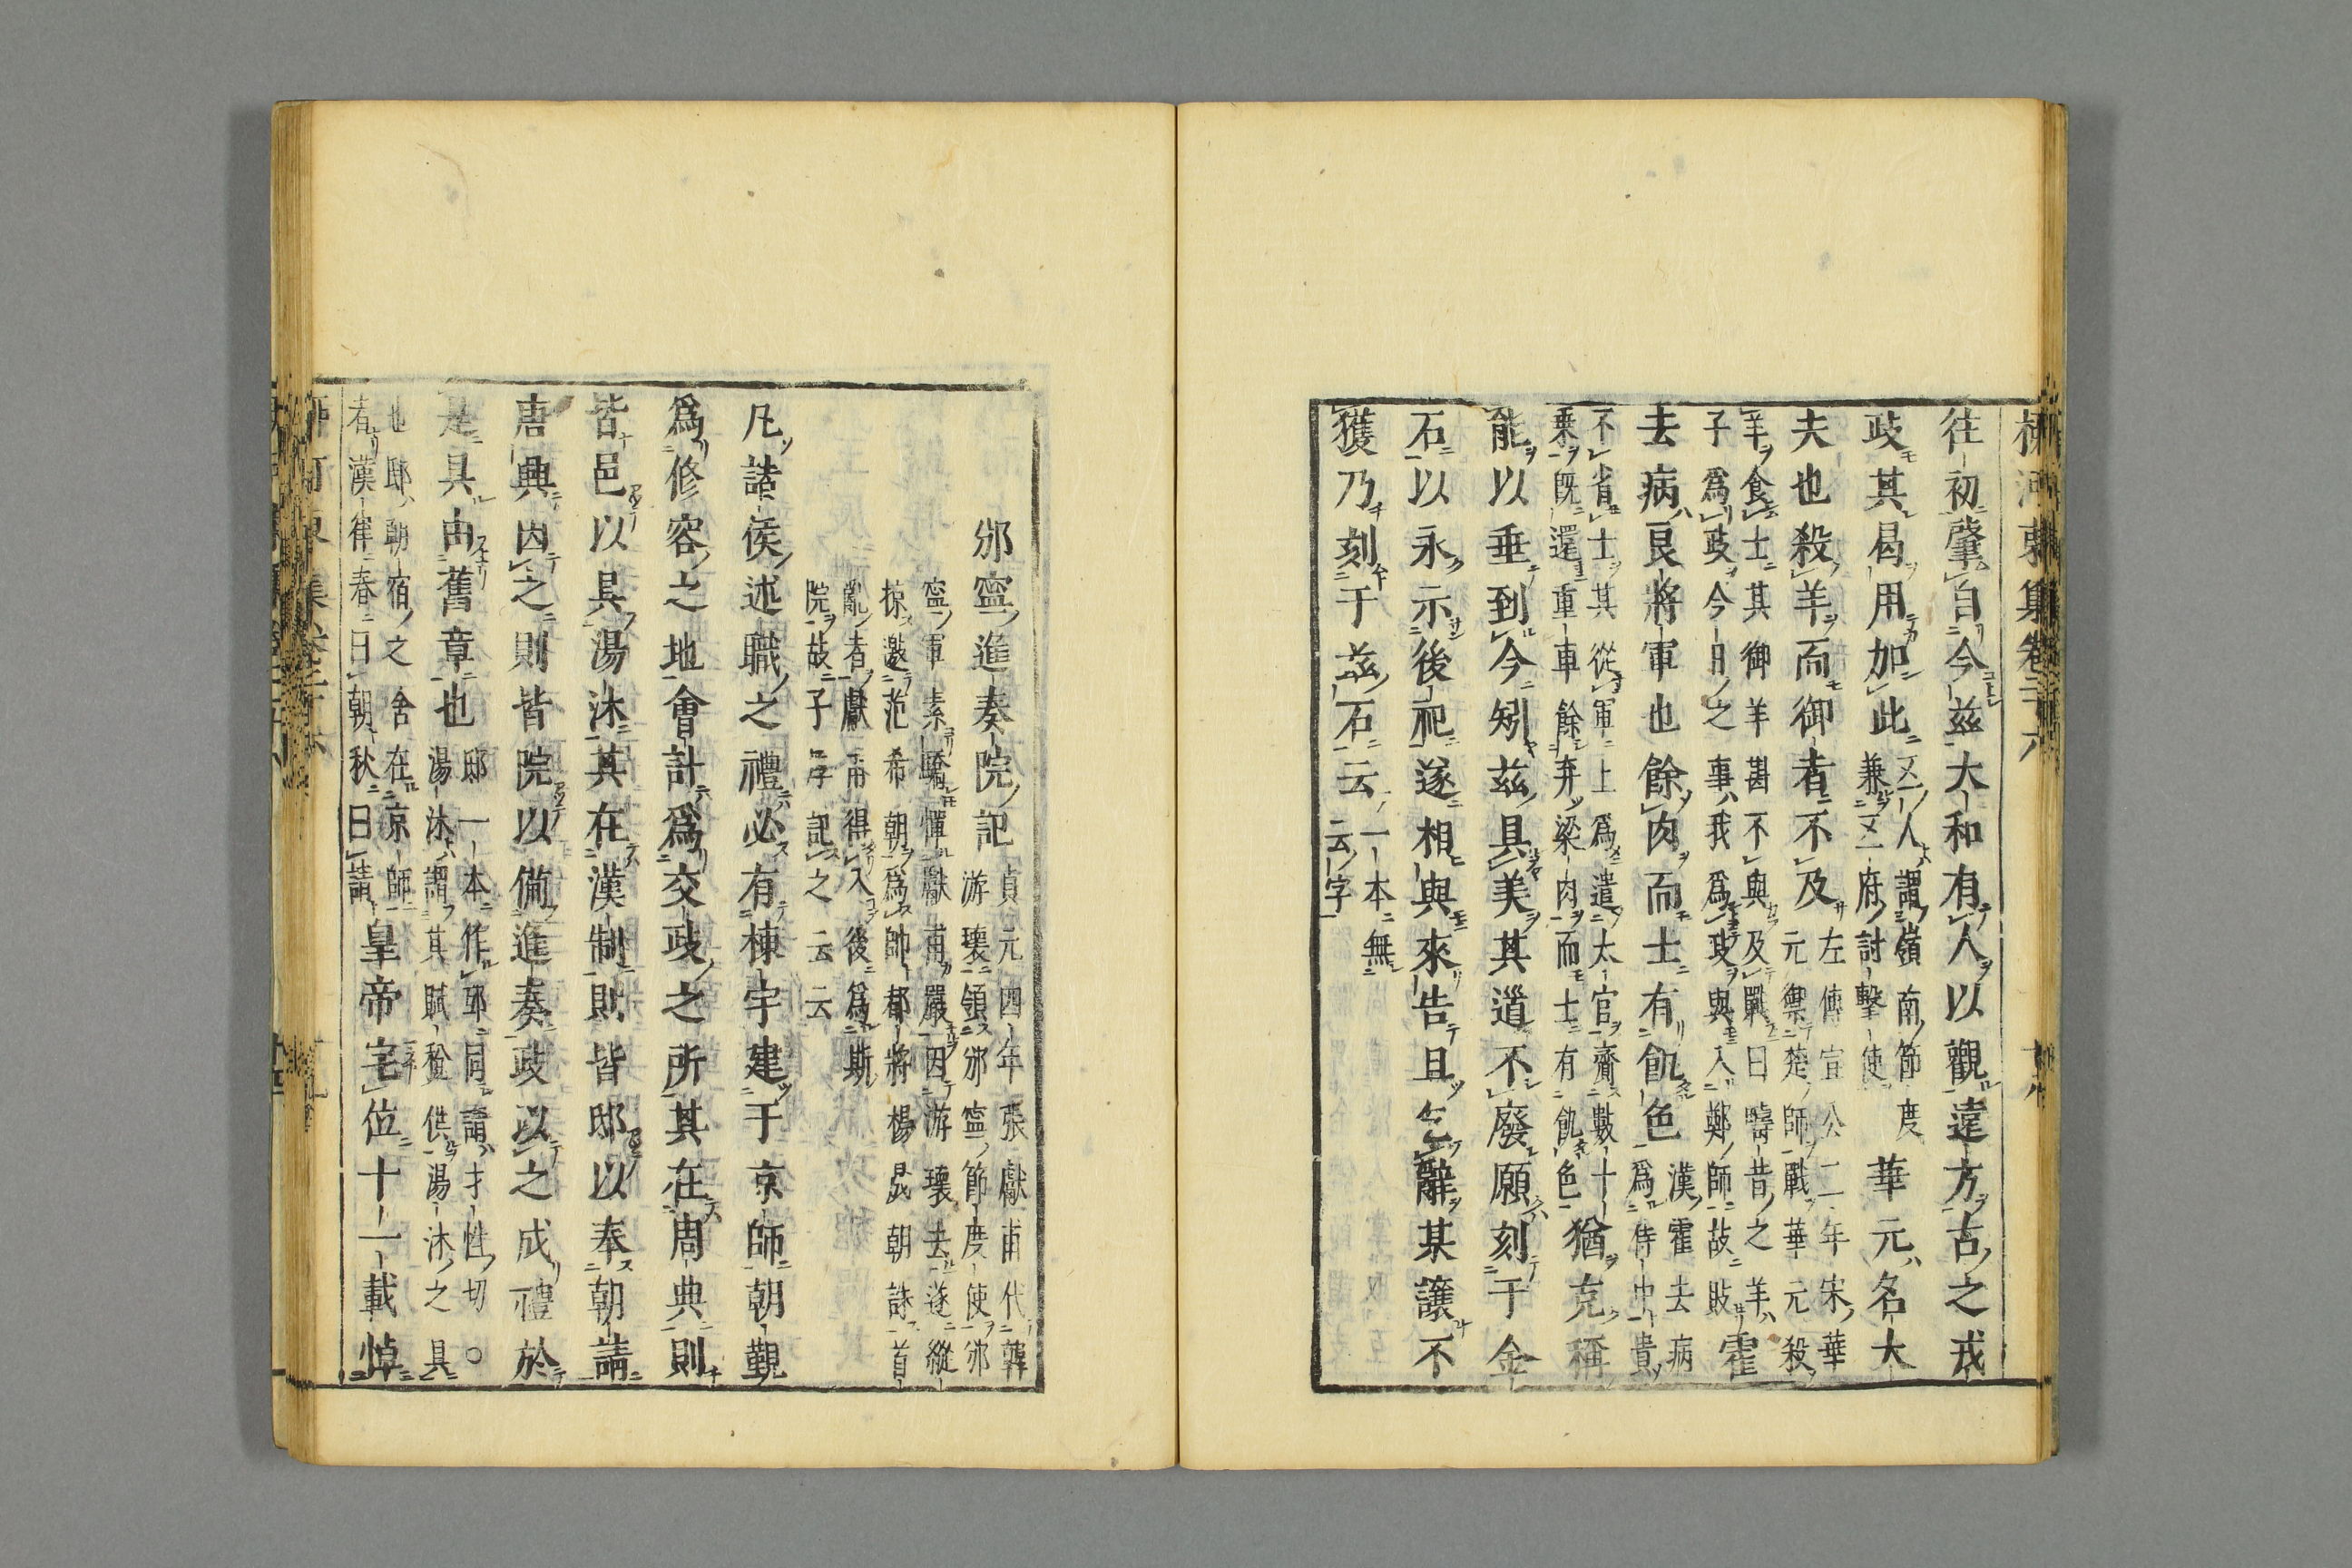 柳河東集卷二十六
往初肇自今茲大和有人以觀遠方古之戎
政其曷用加此
又一人謂嶺南節度
兼又一府討擊使
華元名大
夫也殺羊而御者不及
左傳宣公二年宋華
元禦楚師戰華元殺
羊食士其御羊斟不與及戰曰疇昔之羊
子爲政今日之事我爲政與入鄭師故敗
霍
去病良將軍也餘肉而士有飢色
漢霍去病
爲侍中貴
不省士其從軍上爲遣太官齎數十
乗既還重車餘弃粱肉而士有飢色
猶克稱
能以垂到今矧茲具美其道不廢願刻于金
石以永示後祀遂相與來告且乞辭某讓不
獲乃刻于茲石云
一本無
云字
邠寧進奏院記
貞元四年張獻甫代韓
游瓌領邠寧節度使邠
寧軍素驕憚獻甫嚴因游瓌去遂縱
掠邀范希朝爲帥都將楊炅朝誅首
亂者獻甫得入後爲斯
院故子厚記之云云
凡諸侯述職之禮必有棟宇建于京師朝覲
爲修容之地會計爲交政之所其在周典則
皆邑以具湯沐其在漢制則皆邸以奉朝請
唐興因之則皆院以備進奏政以之成禮於
是具由舊章也
邸一本作邳同請才性切○
湯沐謂其賦稅供湯沐之具
地邸朝宿之舍在京師
者漢律春曰朝秋曰請
皇帝宅位十一載悼